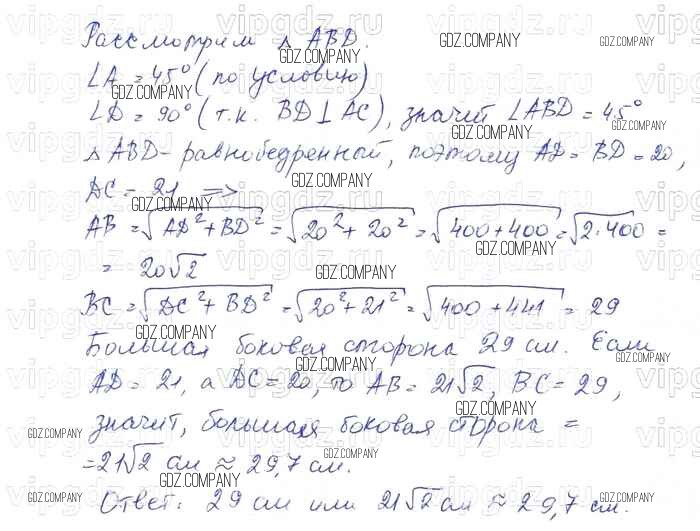 Рассмотрим △ ABD.
∠A = 45° (по условию)
∠D = 90° (т.к. BD⊥AC), значит ∠ABD = 45°
△ABD - равнобедренный, поэтому AD = BD = 20,
DC = 21 =>
AB = √(AD² + BD²) = √(20² + 20²) = √(400 + 400) = √(2·400) =
= 20√2
BC = √(DC² + BD²) = √(20² + 21²) = √(400 + 441) = 29
Большая боковая сторона 29 см. Если
AD = 21, а DC = 20, то AB = 21√2, BC = 29,
значит, большая боковая сторона =
= 21√2 см ≈ 29,7 см.
Ответ: 29 см или 21√2 см ≈ 29,7 см.